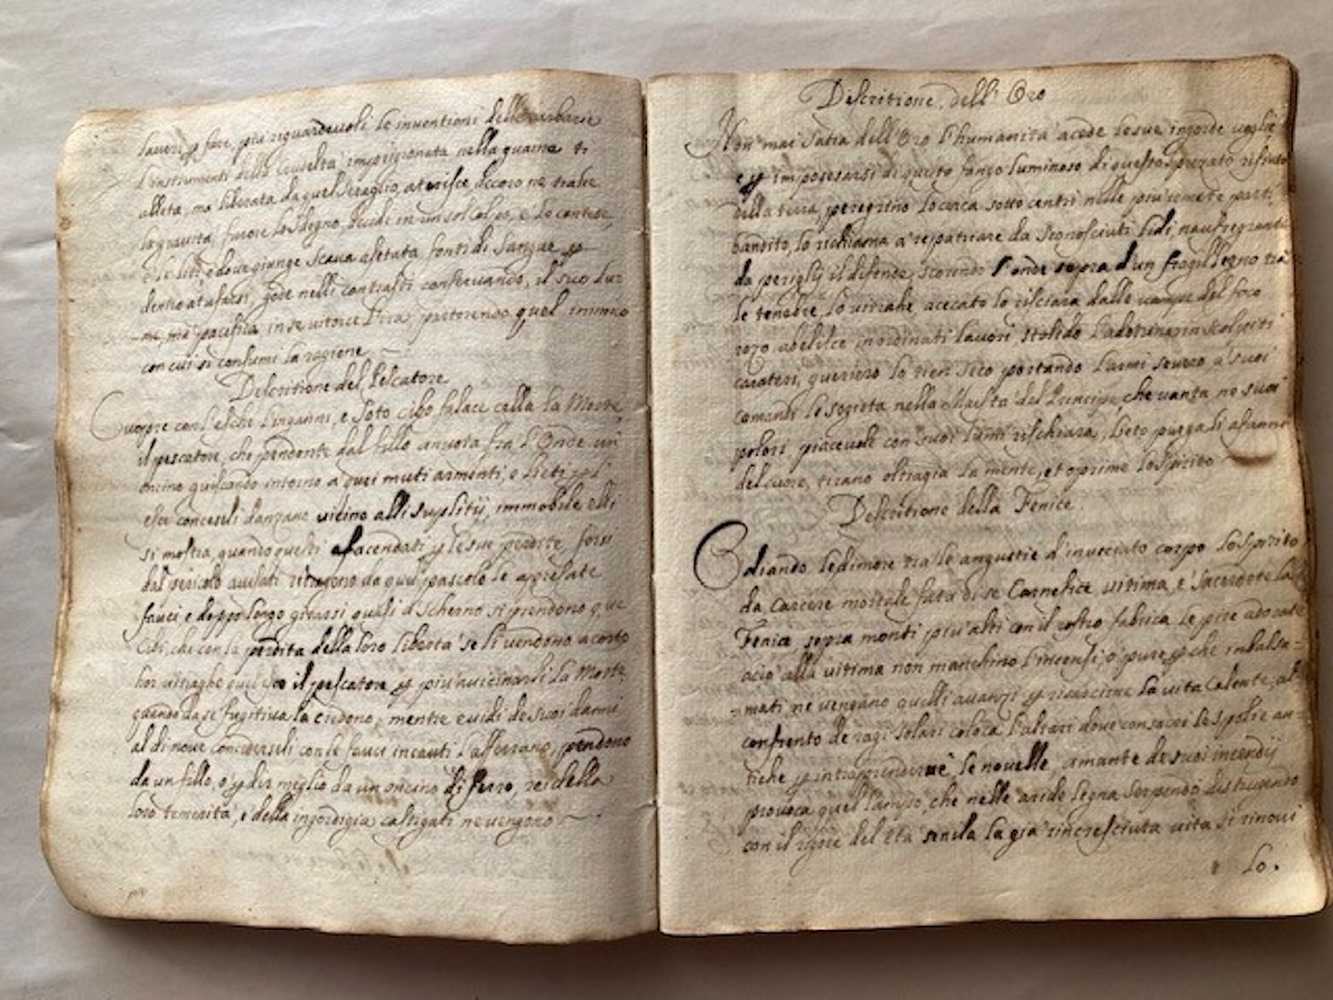 saueri p fare, piu riguardeuoli le inuentioni della barbarie
l'instrumenti della crudeltà imprigionata nella guaina ti
alleta, ma liberata da quel seraglio, aterisce, decoro ne trahe
la grauita, furore lo sdegno, decide in un sol colpo, e lo contese,
e le liti, e doue giunge scaua assetata fonti di Sangue, p
dentro atufarsi, gode nelli contrasti conseruando, il suo lu-
-me, mà pacifica in se ritorce l'ira partorendo quel inimico
con cui si consumi la ragione
Descritione del Pescatore
Cuopre con l'esche l'inganni, e soto cibo falace cella la Morte
il pescatore, che pendente dal fillo ancora fra l'Onde un
oncino guizando intorno a quei muti armenti, e lieti p l'
esca concessali danzano uicino alli suplitij, immobile elli
si mostra, quando questi afacendati p le sue perdite forsi
dal pericolo auisati ritragono da quel pascolo le apressate
fauci e doppo longo girarsi quasi a scherno si prendono que
Cibi, che con la perdita della loro liberta se li uendono a costo
hor ritraghe quel suo il pescatore p piu auicinarsi la Morte
quando da se fugitiua la credono, mentre auidi de suoi danni
al di noue concessali con le fauci incauti l'afferrano, pendono
da un fillo, o p dir meglio da un oncino di ferro, rei della
loro temerità, e della ingordigia castigati ne uengono
Descritione dell' Oro
Non mai Satia dell'Oro l'humanità acede le sue ingorde uoglie
e p impossessarsi di questo fango luminoso di questo sprezato rifiuto
della terra, peregrino lo cerca sotto centri nelle più remote parti,
bandito, lo richiama a repatriare da sconosciuti lidi, naufragante
da periglij il difende, scorendo l'onde sopra d'un fragil legno tra
le tenebre, lo ritrahe, acecato lo rischiara dalle uampe del foco
rozo abelisce in ordinati lauori, stolido l'adotrina in scolpiti
carateri, guerriero lo rien seco portando l'armi seuero a suoi
comandi lo sogieta nella Maestà del Principe, che uanta ne suoi
polori, piaceuole con suoi lumi rischiara, lieto purga li afanni
del cuore, tirano oltragia la mente, et oprime lo Spirito
Descritione della Fenice
Odiando le dimore tra le angustie d'inuechiato corpo lo spirito
da Carcere mortale fata di se Carnefice, uitima, e Sacerdote la
Fenice, sopra monti piu alti con il rostro fabrica le pire adorate
acio alla uitima non manchino l'incensi, o pure p che imbalsa-
-mati ne uengano quelli auanzi p rinascime la uita Calente, al
confronto de ragi solari coloca l'altari doue consacri le spolie an-
tiche p intraprenderne le nouelle, amante de suoi incendij
prouoca quel lampo, che nelle aride legna serpendo distruendo
con il rigore del età senile la già rincresciuta uita si rinoui
Lo.